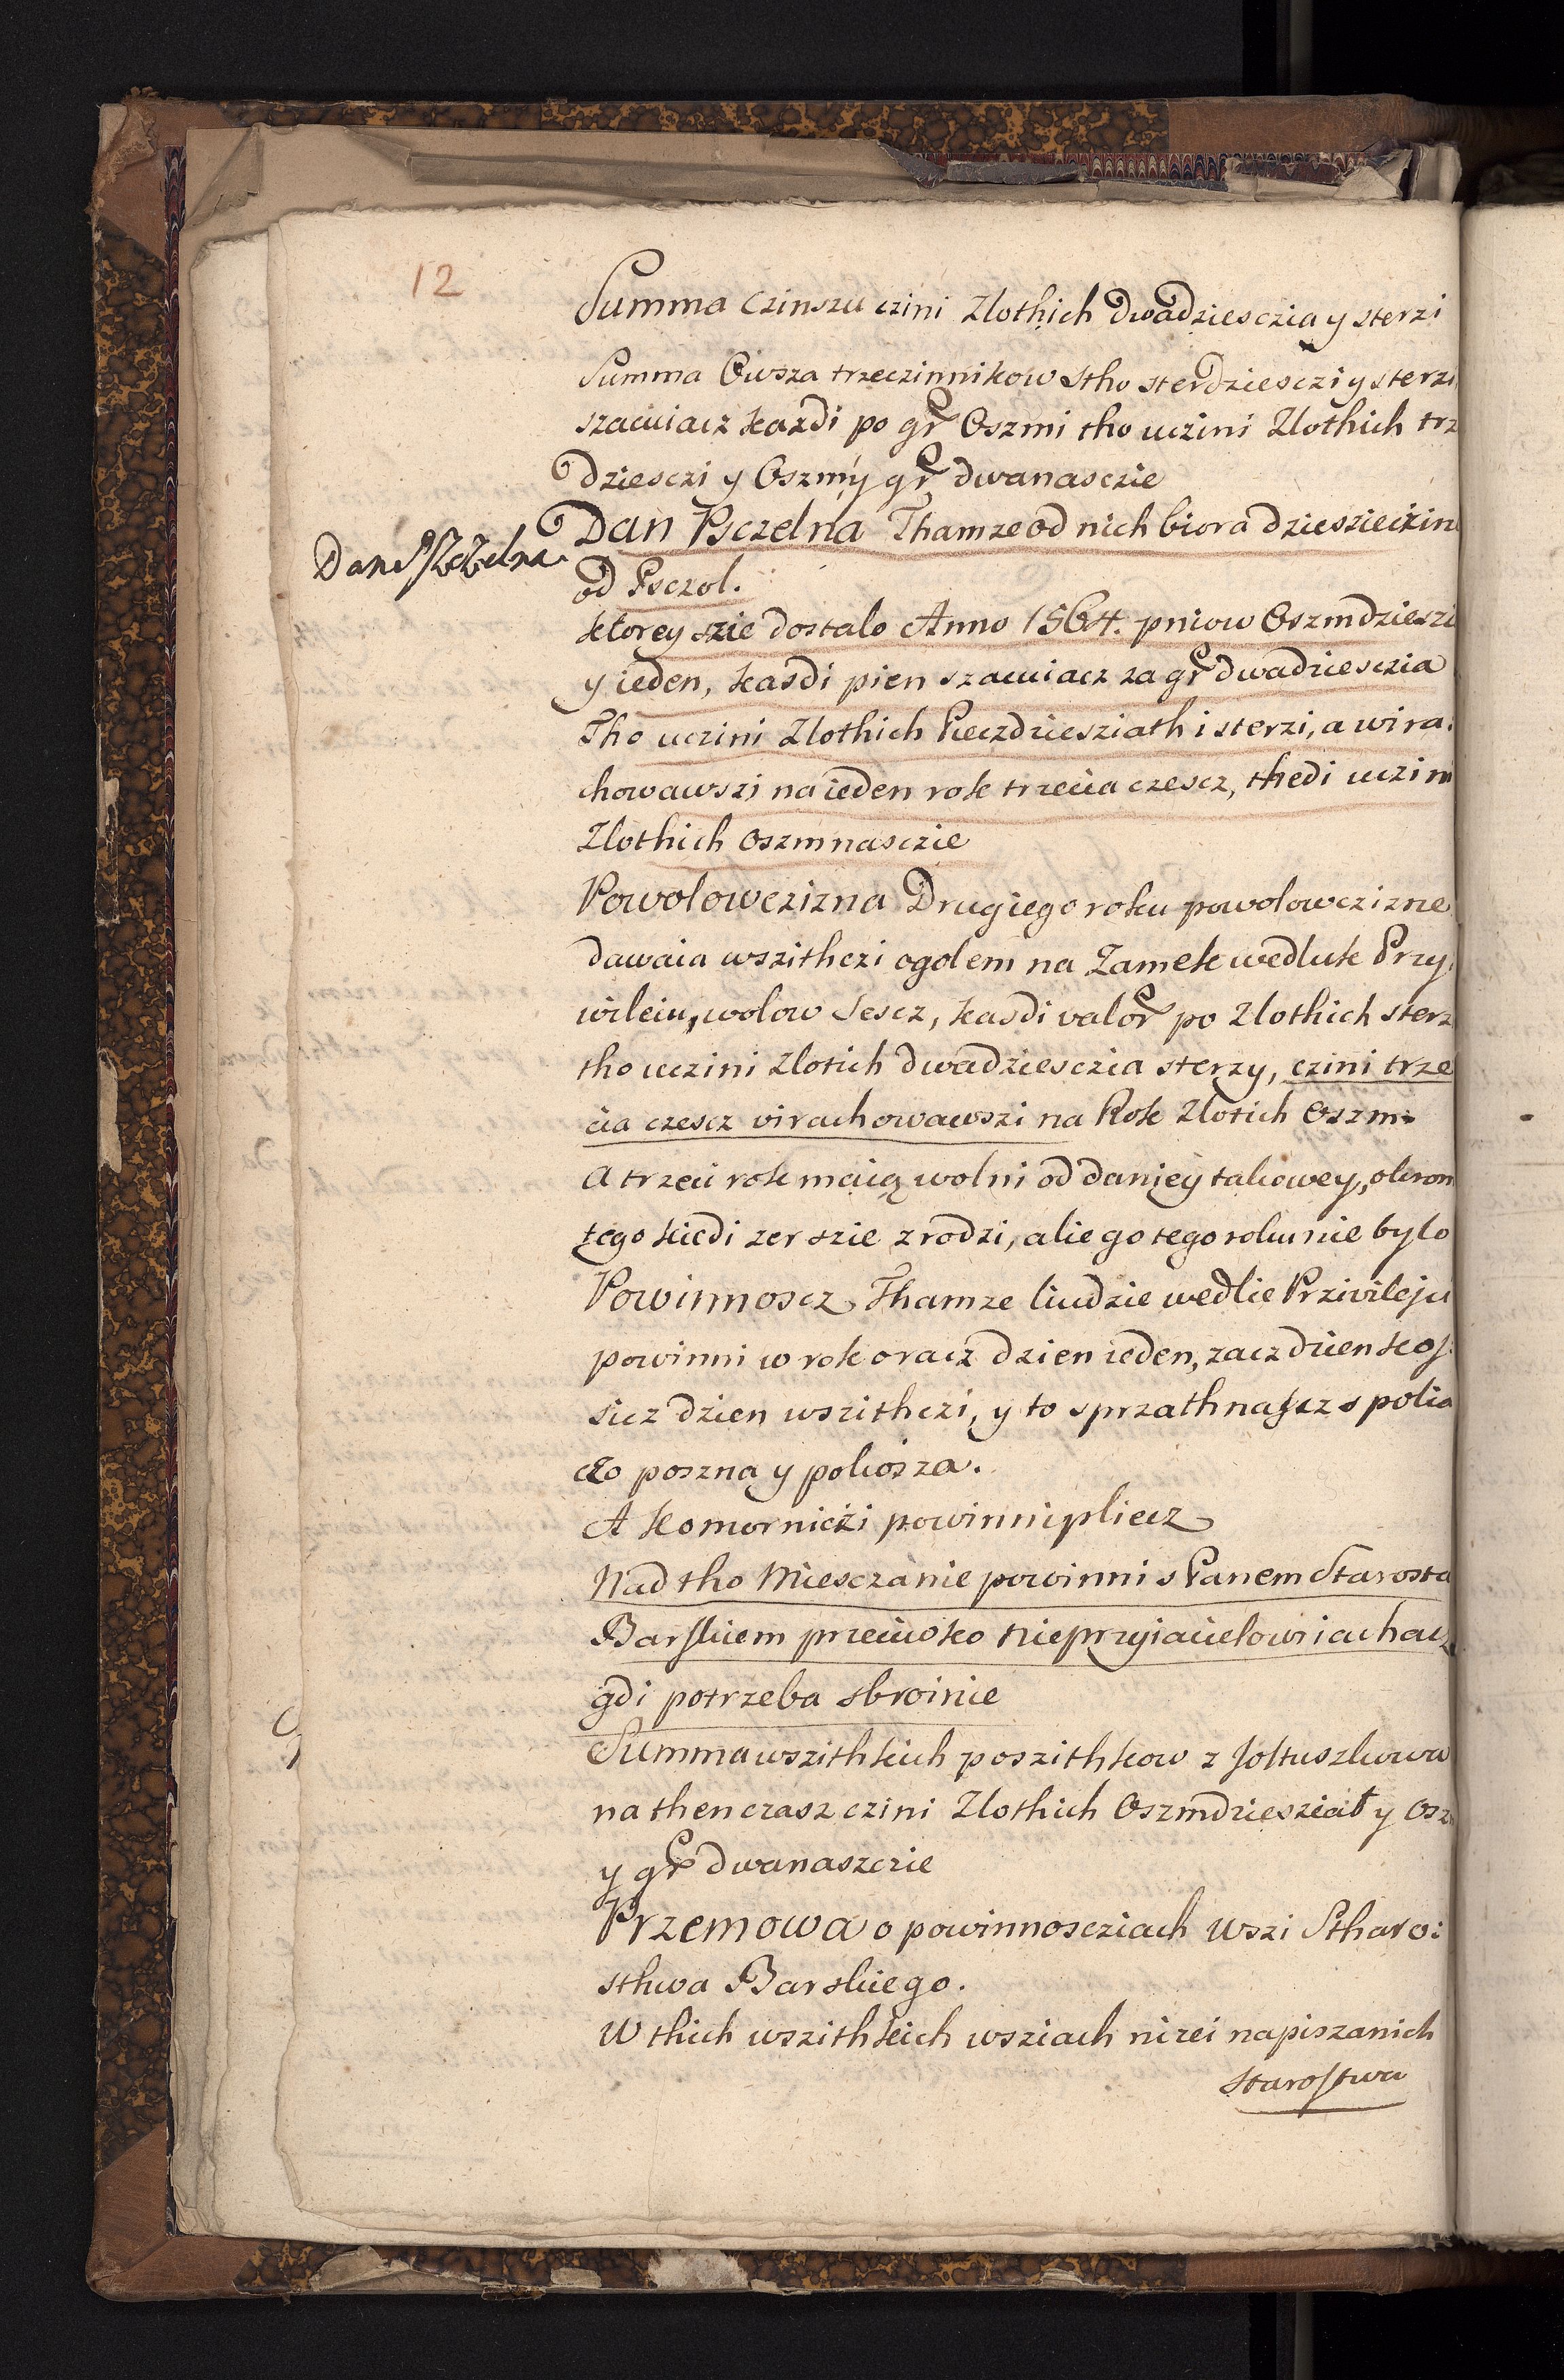 12
Summa Czinszu czini Zlothich dwadziesczia y sterzi
Summa Owsza trzeczinnikow Stho sterdziesczi y sterzi
szacuiacz kazdi po gr Oszmi tho uczini Zlothich trz
dziesczi y Oszmy gr dwanasczie
Dan Psczelna Thamze od nich biora dzieszieczin
Dan Pszczelna
od Psczol.
ktorey szie dostalo Anno 1564. pniow Oszmdzieszi
y ieden, kasdi pien szacuiacz za gr dwadziesczia
Tho uczini Zlothich Pieczdziesziath i sterzi, a wira-
chowawszi na ieden rok trzecia czescz, thedi uczini
Zlothich oszmnasczie
Powolowczizna Drugiego roku powolowczizne
dawaia wszithczi ogolem na Zamek wedluk Przy,
wileiu, wolow sescz, kasdi valor po Zlothich sterz
tho uczini Zlotich dwadziesczia sterzy, czini trze
cia czescz virachowawszi na Rok Zlotich Oszm:
A trzeci rok maią wolni od daniey takowey, okrom
tego kiedi zer szie zrodzi, alie go tego roku nie bylo
Powinnoscz Thamze liudzie wedlie Przivileju
powinni w rok oracz dzien ieden, zacz dzien kos
sicz dzien wszithczi, y to sprzathnascz s polia
czo poszna y pokosza.
A Komorniczi powinni pliecz
Nad tho Miesczanie powinni s Panem Starosta
Barskiem przeciwko Nieprzyiacielowi iachacz
gdi potrzeba sbroinie
Summa wszithkich poszithkow z Joltuszkowa
na then czasz czini Zlothich Oszmdziesziat y osz
y gr dwanaszczie
Przemowa o powinnoscziach Wszi Stharo:
sthwa Barskiego.
W thich wszithkich wsziach nizei napiszanich
Starostwa